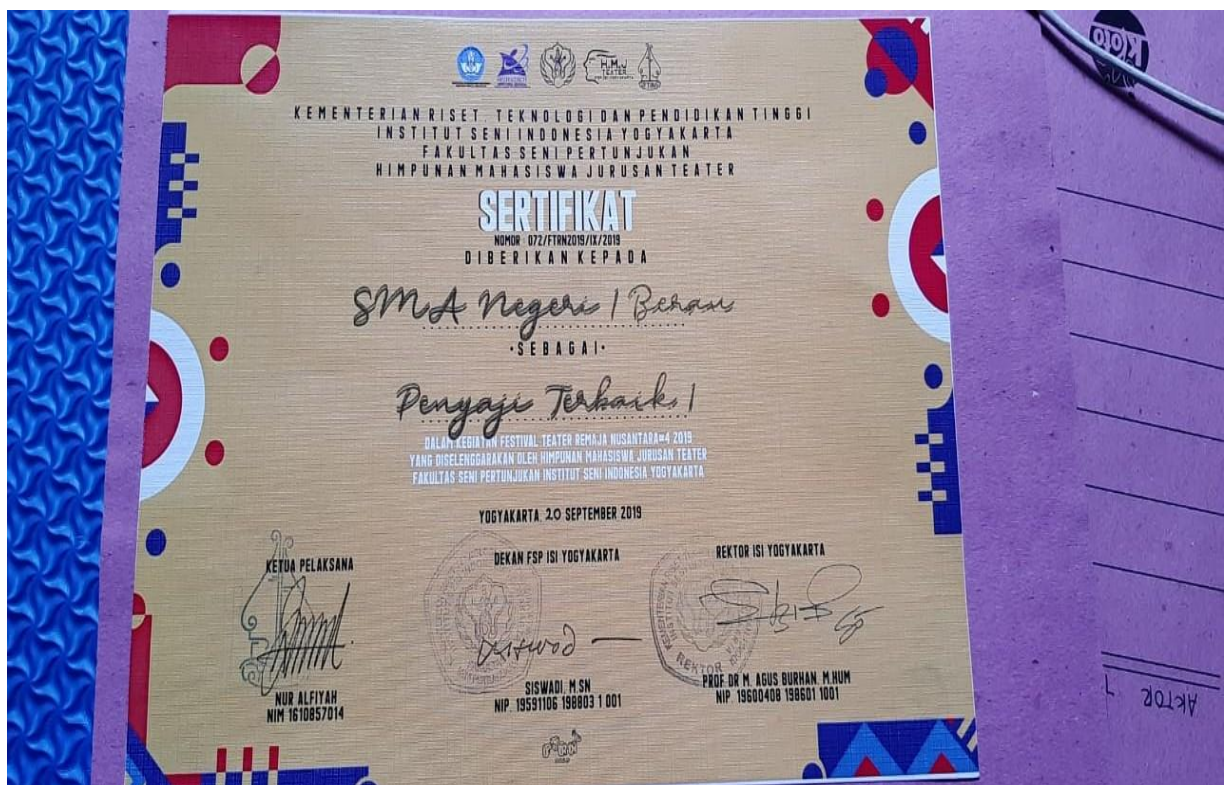 H.M.J
TEATER
KEMENTERIAN RISET, TEKNOLOGI DAN PENDIDIKAN TINGGI
INSTITUT SENI INDONESIA YOGYAKARTA
FAKULTAS SENI PERTUNJUKAN
HIMPUNAN MAHASISWA JURUSAN TEATER
SERTIFIKAT
NOMOR : 072/FTRN2019/IX/2019
DIBERIKAN KEPADA
SMA Negeri 1 Berau
•SEBAGAI•
Penyaji Terbaik 1
DALAM KEGIATAN FESTIVAL TEATER REMAJA NUSANTARA#4 2019
YANG DISELENGGARAKAN OLEH HIMPUNAN MAHASISWA JURUSAN TEATER
FAKULTAS SENI PERTUNJUKAN INSTITUT SENI INDONESIA YOGYAKARTA
YOGYAKARTA, 20 SEPTEMBER 2019
KETUA PELAKSANA
NUR ALFIYAH
NIM 1610857014
DEKAN FSP ISI YOGYAKARTA
SISWADI, M.SN
NIP. 19591106 198803 1 001
REKTOR ISI YOGYAKARTA
REKTOR
PROF. DR. M. AGUS BURHAN, M.HUM
NIP. 19600408 198601 1001
FTRN
Kioto
AKTOR 1